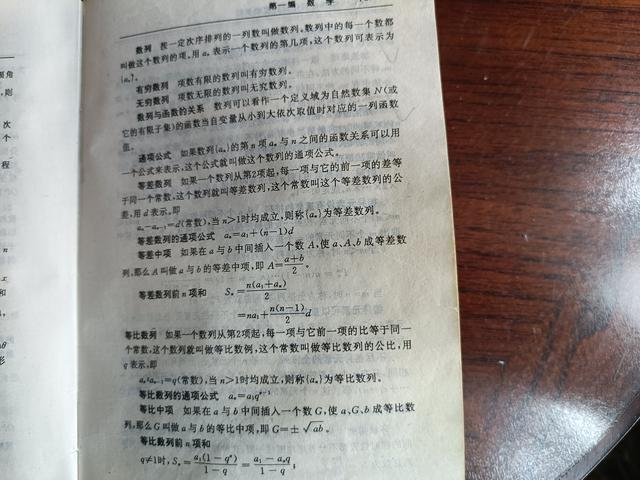 第一编 数 学
数列 按一定次序排列的一列数叫做数列。数列中的每一个数都
叫做这个数列的项。用 aₙ 表示一个数列的第几项，这个数列可表示为
{aₙ}。
有穷数列 项数有限的数列叫有穷数列。
无穷数列 项数无限的数列叫无究数列。
数列与函数的关系 数列可以看作一个定义域为自然数集 N(或
它的有限子集)的函数当自变量从小到大依次取值时对应的一列函数
值。
通项公式 如果数列{aₙ}的第 n 项 aₙ 与 n 之间的函数关系可以用
一个公式来表示，这个公式就叫做这个数列的通项公式。
等差数列 如果一个数列从第2项起，每一项与它的前一项的差等
于同一个常数，这个数列就叫等差数列，这个常数叫这个等差数列的公
差，用 d 表示。即
aₙ-aₙ₋₁=d(常数)，当 n>1时均成立，则称{aₙ}为等差数列。
等差数列的通项公式 aₙ=a₁+(n-1)d
等差中项 如果在 a 与 b 中间插入一个数 A，使 a、A、b 成等差数
列，那么 A 叫做 a 与 b 的等差中项，即 A=(a+b)/2。
等差数列前 n 项和 Sₙ=n(a₁+aₙ)/2
=na₁+n(n-1)/2 d
等比数列 如果一个数列从第2项起，每一项与它前一项的比等于同一
个常数，这个数列就叫做等比数例，这个常数叫做等比数列的公比，用
q 表示，即
aₙ:aₙ₋₁=q(常数)，当 n>1时均成立，则称{aₙ}为等比数列。
等比数列的通项公式 aₙ=a₁qⁿ⁻¹
等比中项 如果在 a 与 b 中间插入一个数 G，使 a、G、b 成等比数
列，那么 G 叫做 a 与 b 的等比中项，即 G=±√ab。
等比数列前 n 项和
q≠1时，Sₙ=a₁(1-qⁿ)/(1-q)=(a₁-aₙq)/(1-q)；